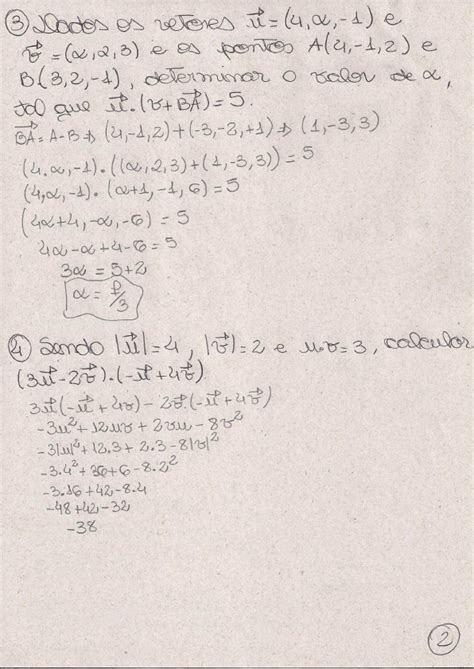 ③ Dados os vetores u⃗=(4,α,-1) e
v⃗=(α,2,3) e os pontos A(4,-1,2) e
B(3,2,-1), determinar o valor de α,
tal que u⃗.(v+BA⃗)=5.
BA⃗=A-B⇒(4,-1,2)+(-3,-2,+1)⇒(1,-3,3)
(4,α,-1).((α,2,3)+(1,-3,3))=5
(4,α,-1).(α+1,-1,6)=5
(4α+4,-α,-6)=5
4α-α+4-6=5
3α=5+2
α=7/3
④ Sendo |u⃗|=4, |v⃗|=2 e u.v=3, calcular
(3u⃗-2v⃗).(-u⃗+4v⃗)
3u⃗(-u⃗+4v)-2v⃗.(-u⃗+4v⃗)
-3u²+12uv+2vu-8v²
-3|u|²+12.3+2.3-8|v|²
-3.4²+36+6-8.2²
-3.16+42-8.4
-48+42-32
-38
2